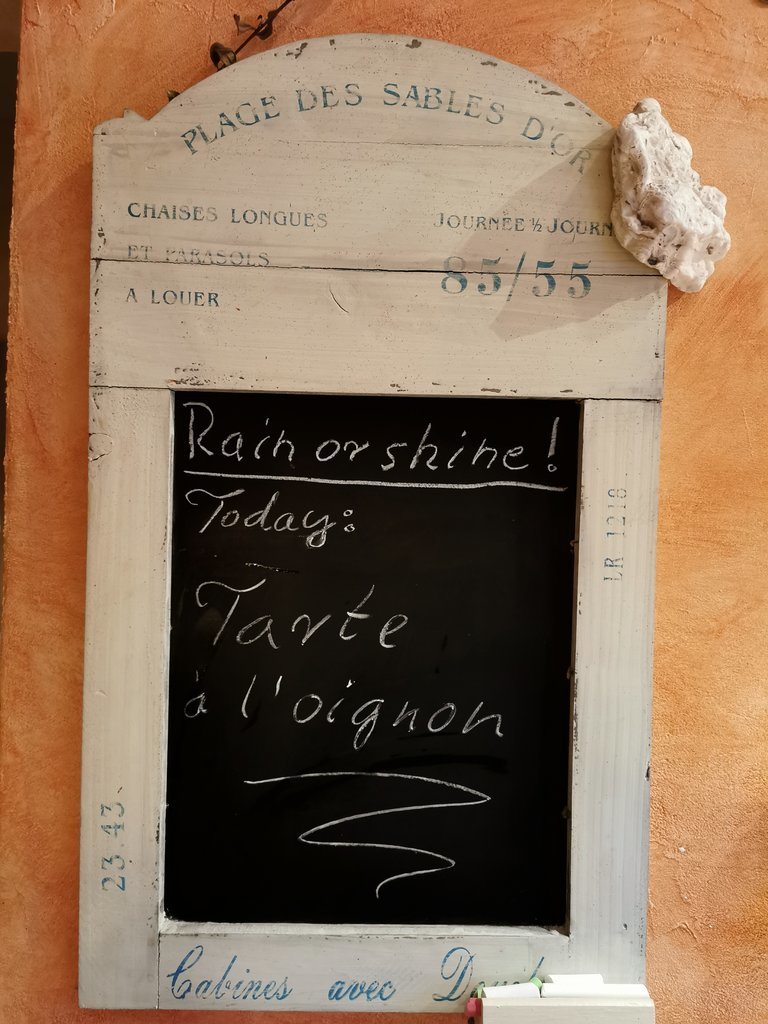 PLAGE DES SABLES D'OR
CHAISES LONGUES
ET PARASOLS
A LOUER
JOURNÉE ½ JOURN
85/55
Rain or shine!
Today:
Tarte
à l'oignon
LR 1218
23 43
Cabines avec